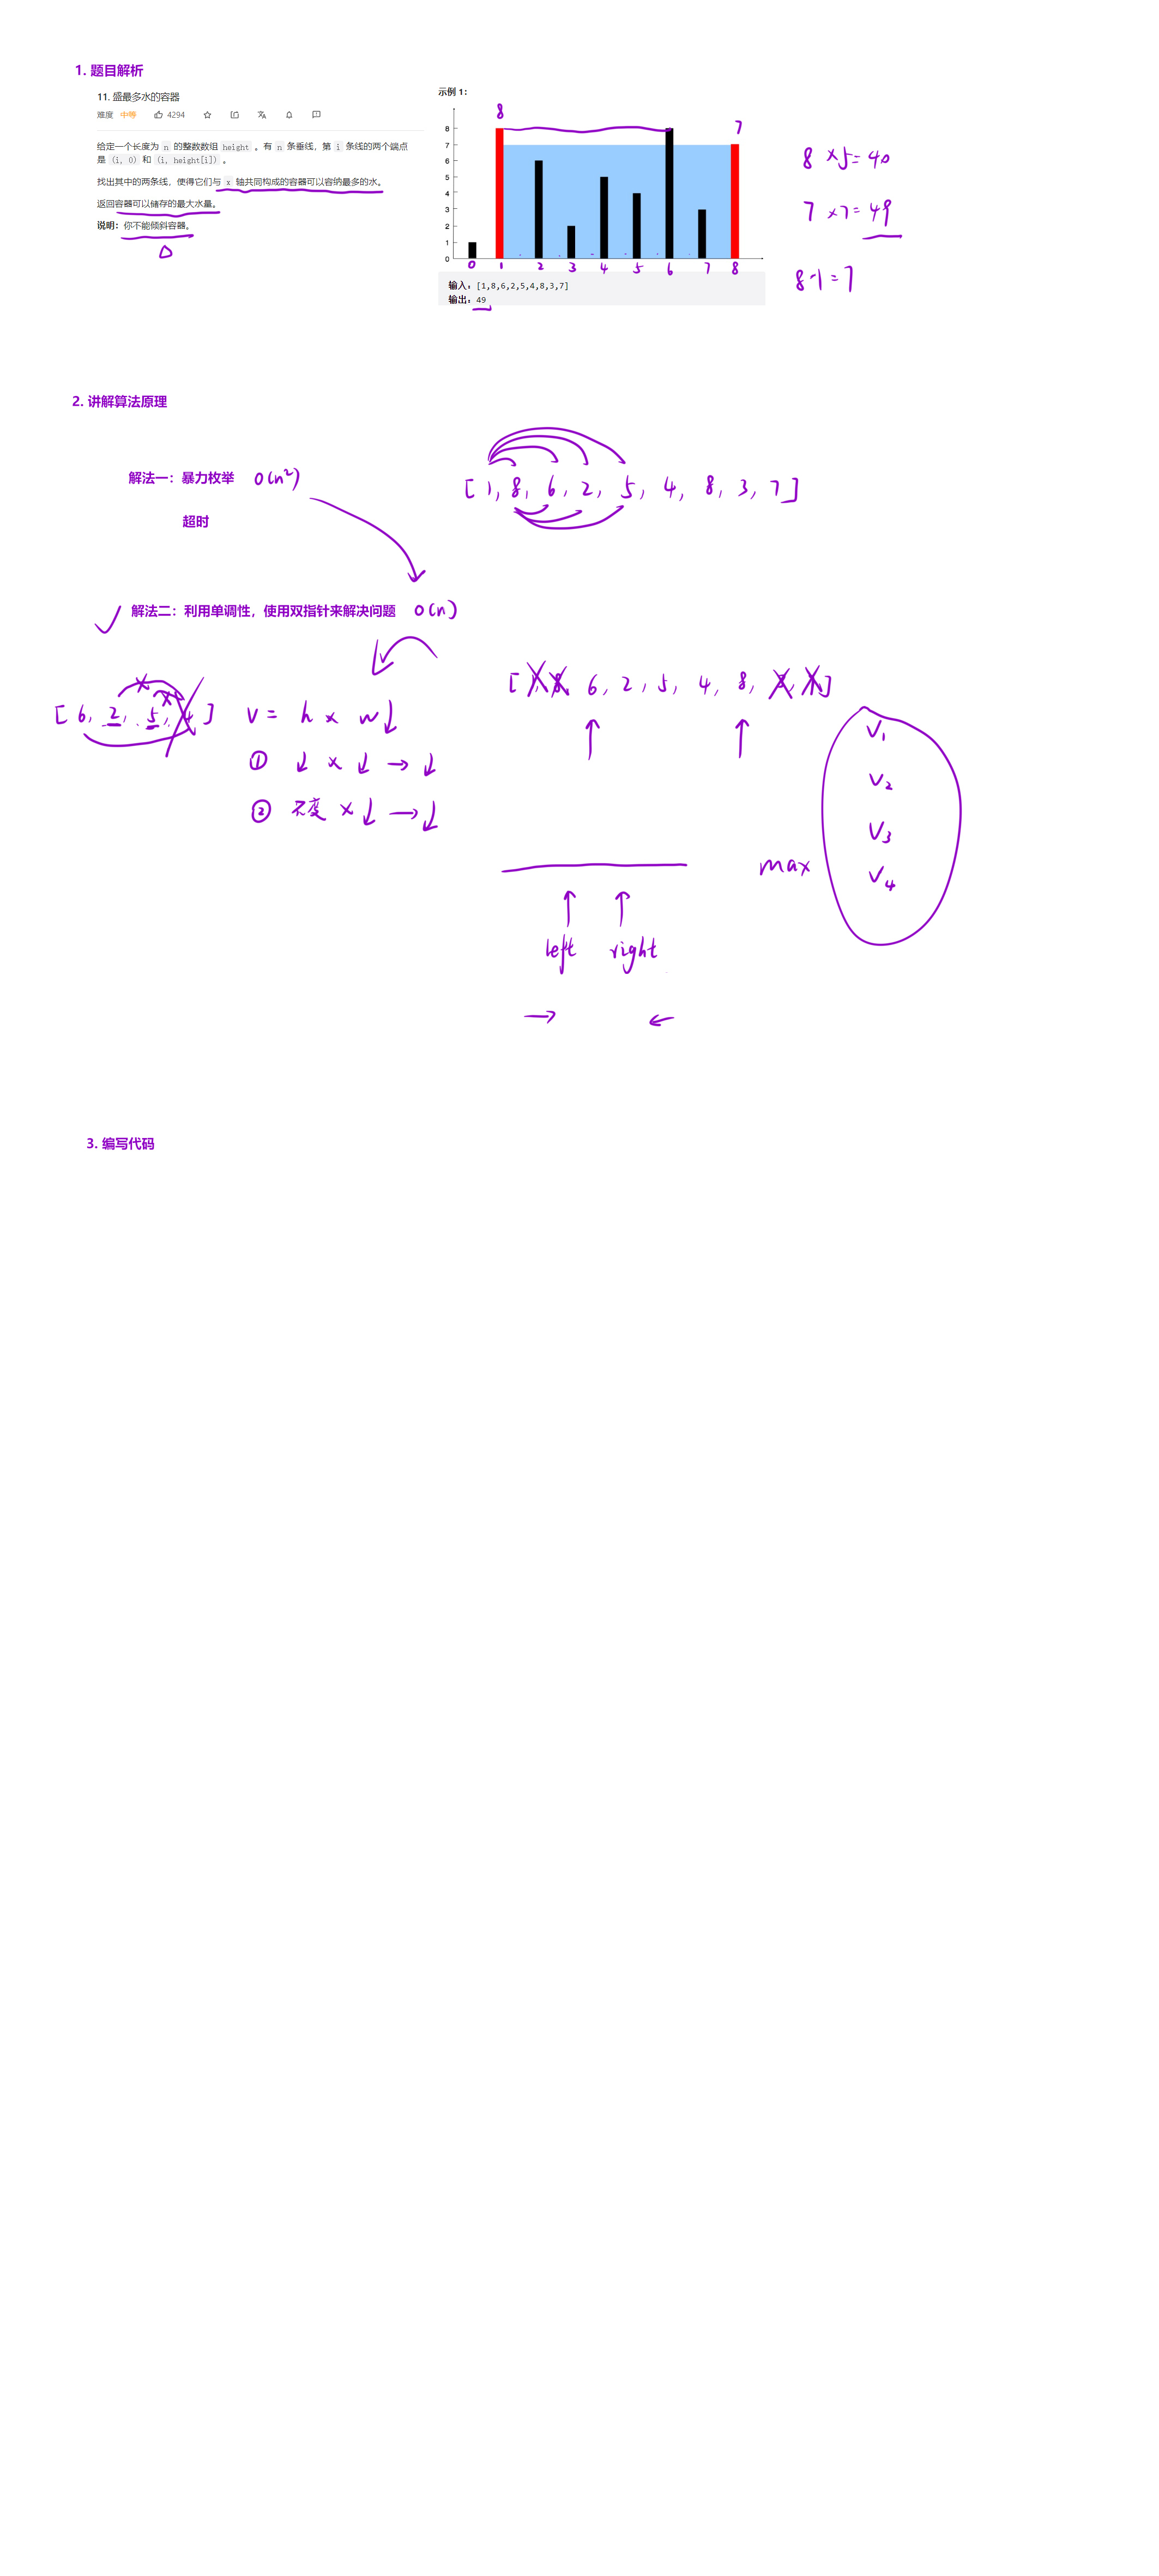 1. 题目解析
11. 盛最多水的容器
难度 中等 4294
给定一个长度为 n 的整数数组 height 。有 n 条垂线，第 i 条线的两个端点
是 (i, 0) 和 (i, height[i]) 。
找出其中的两条线，使得它们与 x 轴共同构成的容器可以容纳最多的水。
返回容器可以储存的最大水量。
说明：你不能倾斜容器。
示例 1：
8
7
8
7
6
5
4
3
2
1
0
0 1 2 3 4 5 6 7 8
输入：[1,8,6,2,5,4,8,3,7]
输出：49
8 × 5 = 40
7 × 7 = 49
8 - 1 = 7
2. 讲解算法原理
解法一：暴力枚举 O(n²)
超时
[1, 8, 6, 2, 5, 4, 8, 3, 7]
解法二：利用单调性，使用双指针来解决问题 O(n)
[6, 2, 5, 4]
v = h × w↓
① ↓ × ↓ → ↓
② 不变 × ↓ → ↓
6, 2, 5, 4, 8,
max
V1
V2
V3
V4
left right
→ ←
3. 编写代码